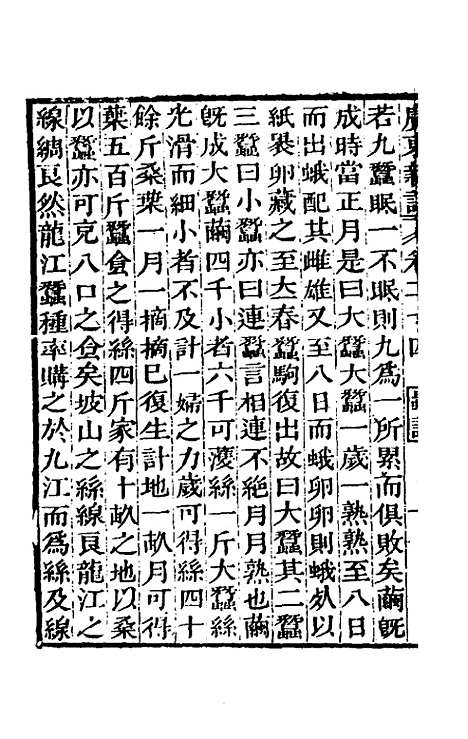 廣東新語 卷二十四 蟲語
若九蠶眠一不眠則九爲一所累而俱敗矣繭既
成時當正月是曰大蠶大蠶一歲一熟熟至八日
而出蛾配其雌雄又至八日而蛾卵卵則蛾𣦸以
紙暴卵藏之至大春蠶駒復出故曰大蠶其二蠶
三蠶曰小蠶亦曰連蠶言相連不絕月月熟也繭
既成大蠶繭四千小者六千可獲絲一斤大蠶絲
光滑而細小者不及計一婦之力歲可得絲四十
餘斤桑葉一月一摘摘已復生計地一畝月可得
葉五百斤蠶食之得絲四斤家有十畝之地以桑
以蠶亦可克八口之食矣坡山之絲線良龍江之
線縐良然龍江蠶種率購之於九江而爲絲及線